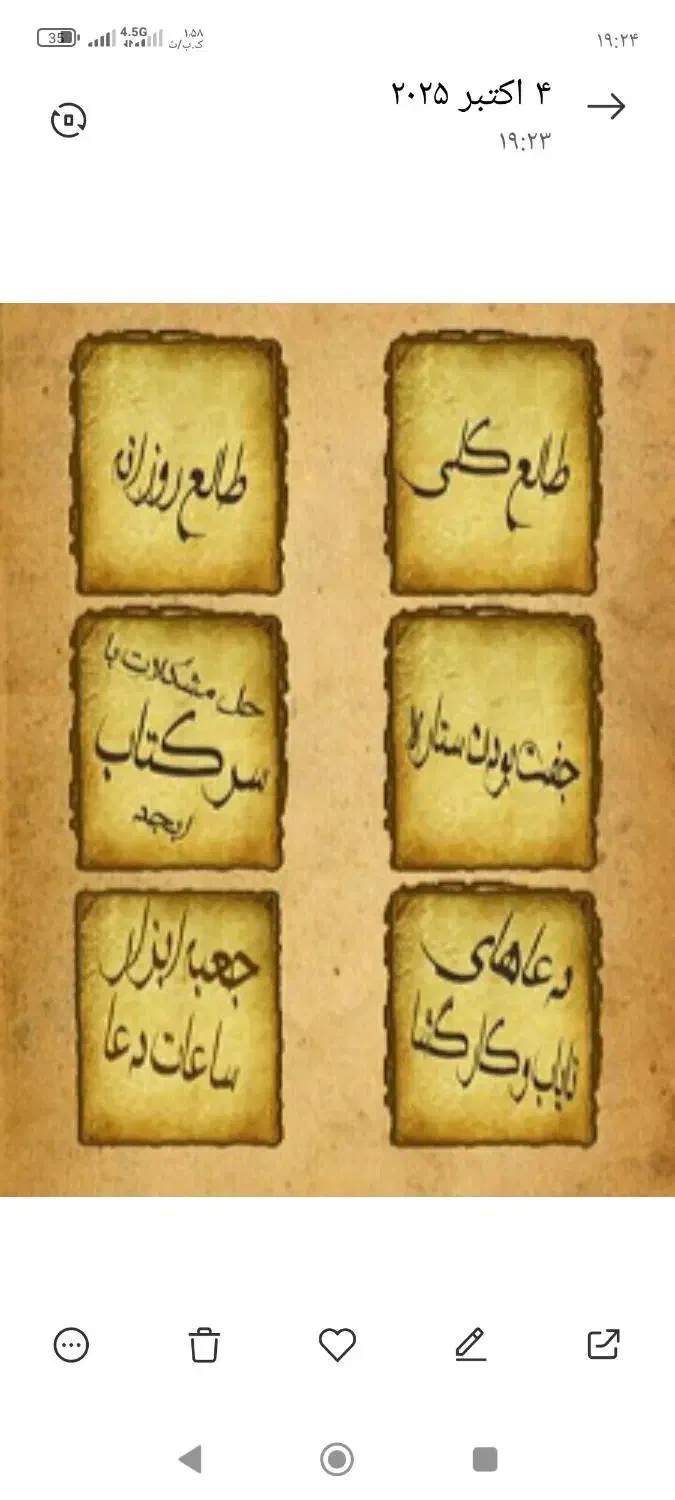 ۱۹:۲۴
4.5G
۱٫۵۸
ک.ب/ث
35
۴ اکتبر ۲۰۲۵
۱۹:۲۳
طالع کلی
طالع روزانه
جفت بودن ستاره
حل مشکلات با
سرکتاب
ابجد
دعاهای
نایاب و کارگشا
جعبه ابزار
ساعات دعا